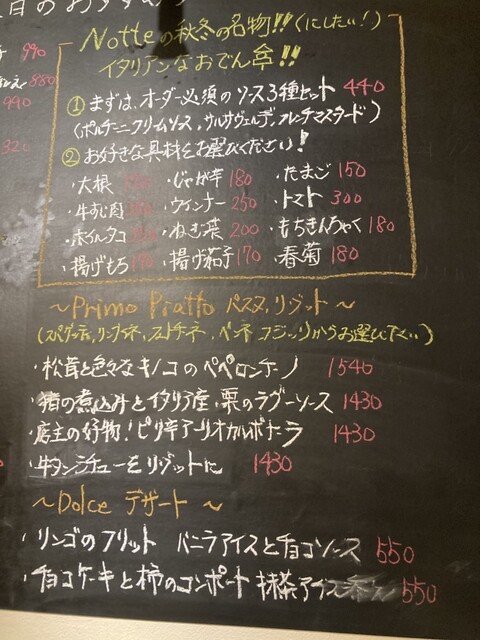 990
880
990
320
Notteの秋冬の名物!! (にしたい!)
イタリアンなおでん亭!!
① まずは、オーダー必須のソース3種セット 440
(ポルチーニクリームソース, サルサヴェルデ, フレンチマスタード)
② お好きな具材をお選びください!
・大根 ・じゃが芋 180 ・たまご 150
・牛すじ肉 ・ウインナー 250 ・トマト 300
・ホイルタコ ・ねぎ菜 200 ・もちきんちゃく 180
・揚げもち ・揚げ茄子 170 ・春菊 180
〜Primo Piatto パスタ, リゾット〜
からお選び下さい)
・松茸と色々なキノコのペペロンチーノ 1540
・猪の煮込みとイタリア産 栗のラグーソース 1430
・店主の好物! ピリ辛アーリオカルボナーラ 1430
・牛タンシチューをリゾットに 1430
〜Dolce デザート〜
・リンゴのフリット バニラアイスとチョコソース 550
・チョコケーキと柿のコンポート 抹茶アイス 550